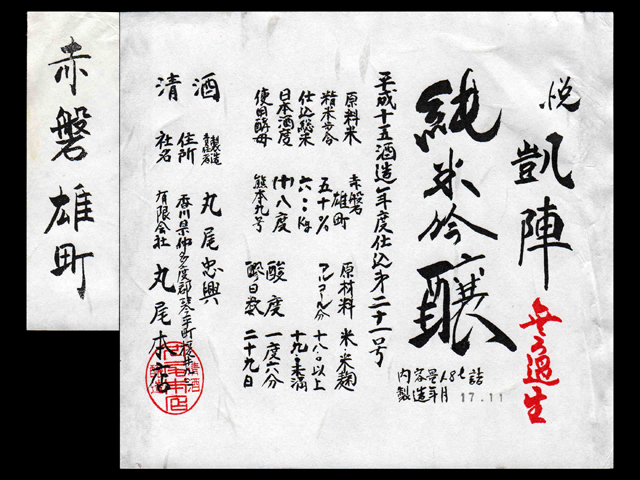 悦
凱陣
無ろ過生
純米吟醸
内容量1.8ℓ詰
製造年月 17.11
平成十五酒造年度仕込第二十一号
原料米 赤磐雄町
精米歩合 五十%
仕込総米 六〇〇kg
日本酒度 (+)八度
使用酵母 熊本九号
原材料 米・米麹
アルコール分 十八.〇以上
十九.〇未満
酸度 一度六分
醪日数 二十九日
清酒
製造責任者 丸尾忠興
住所 香川県仲多度郡琴平町榎井九三
社名 有限会社 丸尾本店
赤磐雄町